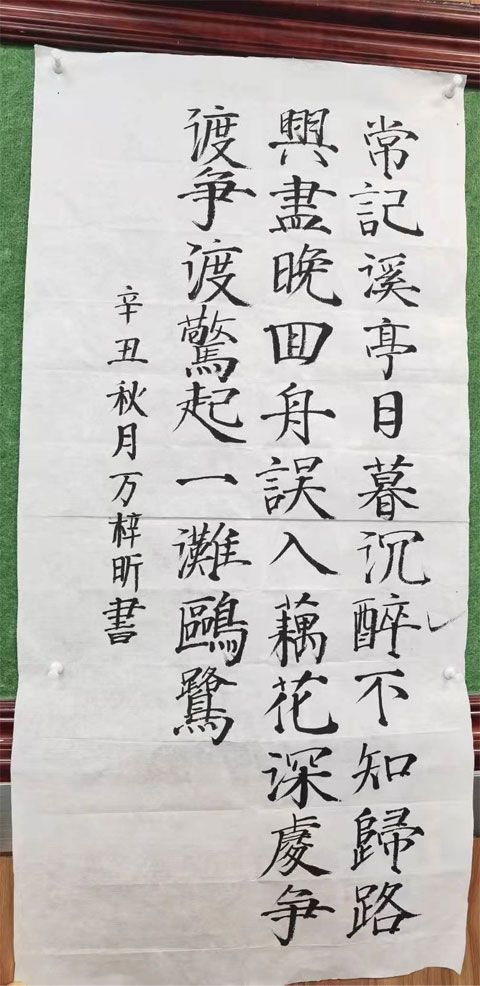 常記溪亭日暮沉醉不知歸路
興盡晚回舟誤入藕花深處争
渡争渡驚起一灘鷗鷺
辛丑秋月万梓昕書